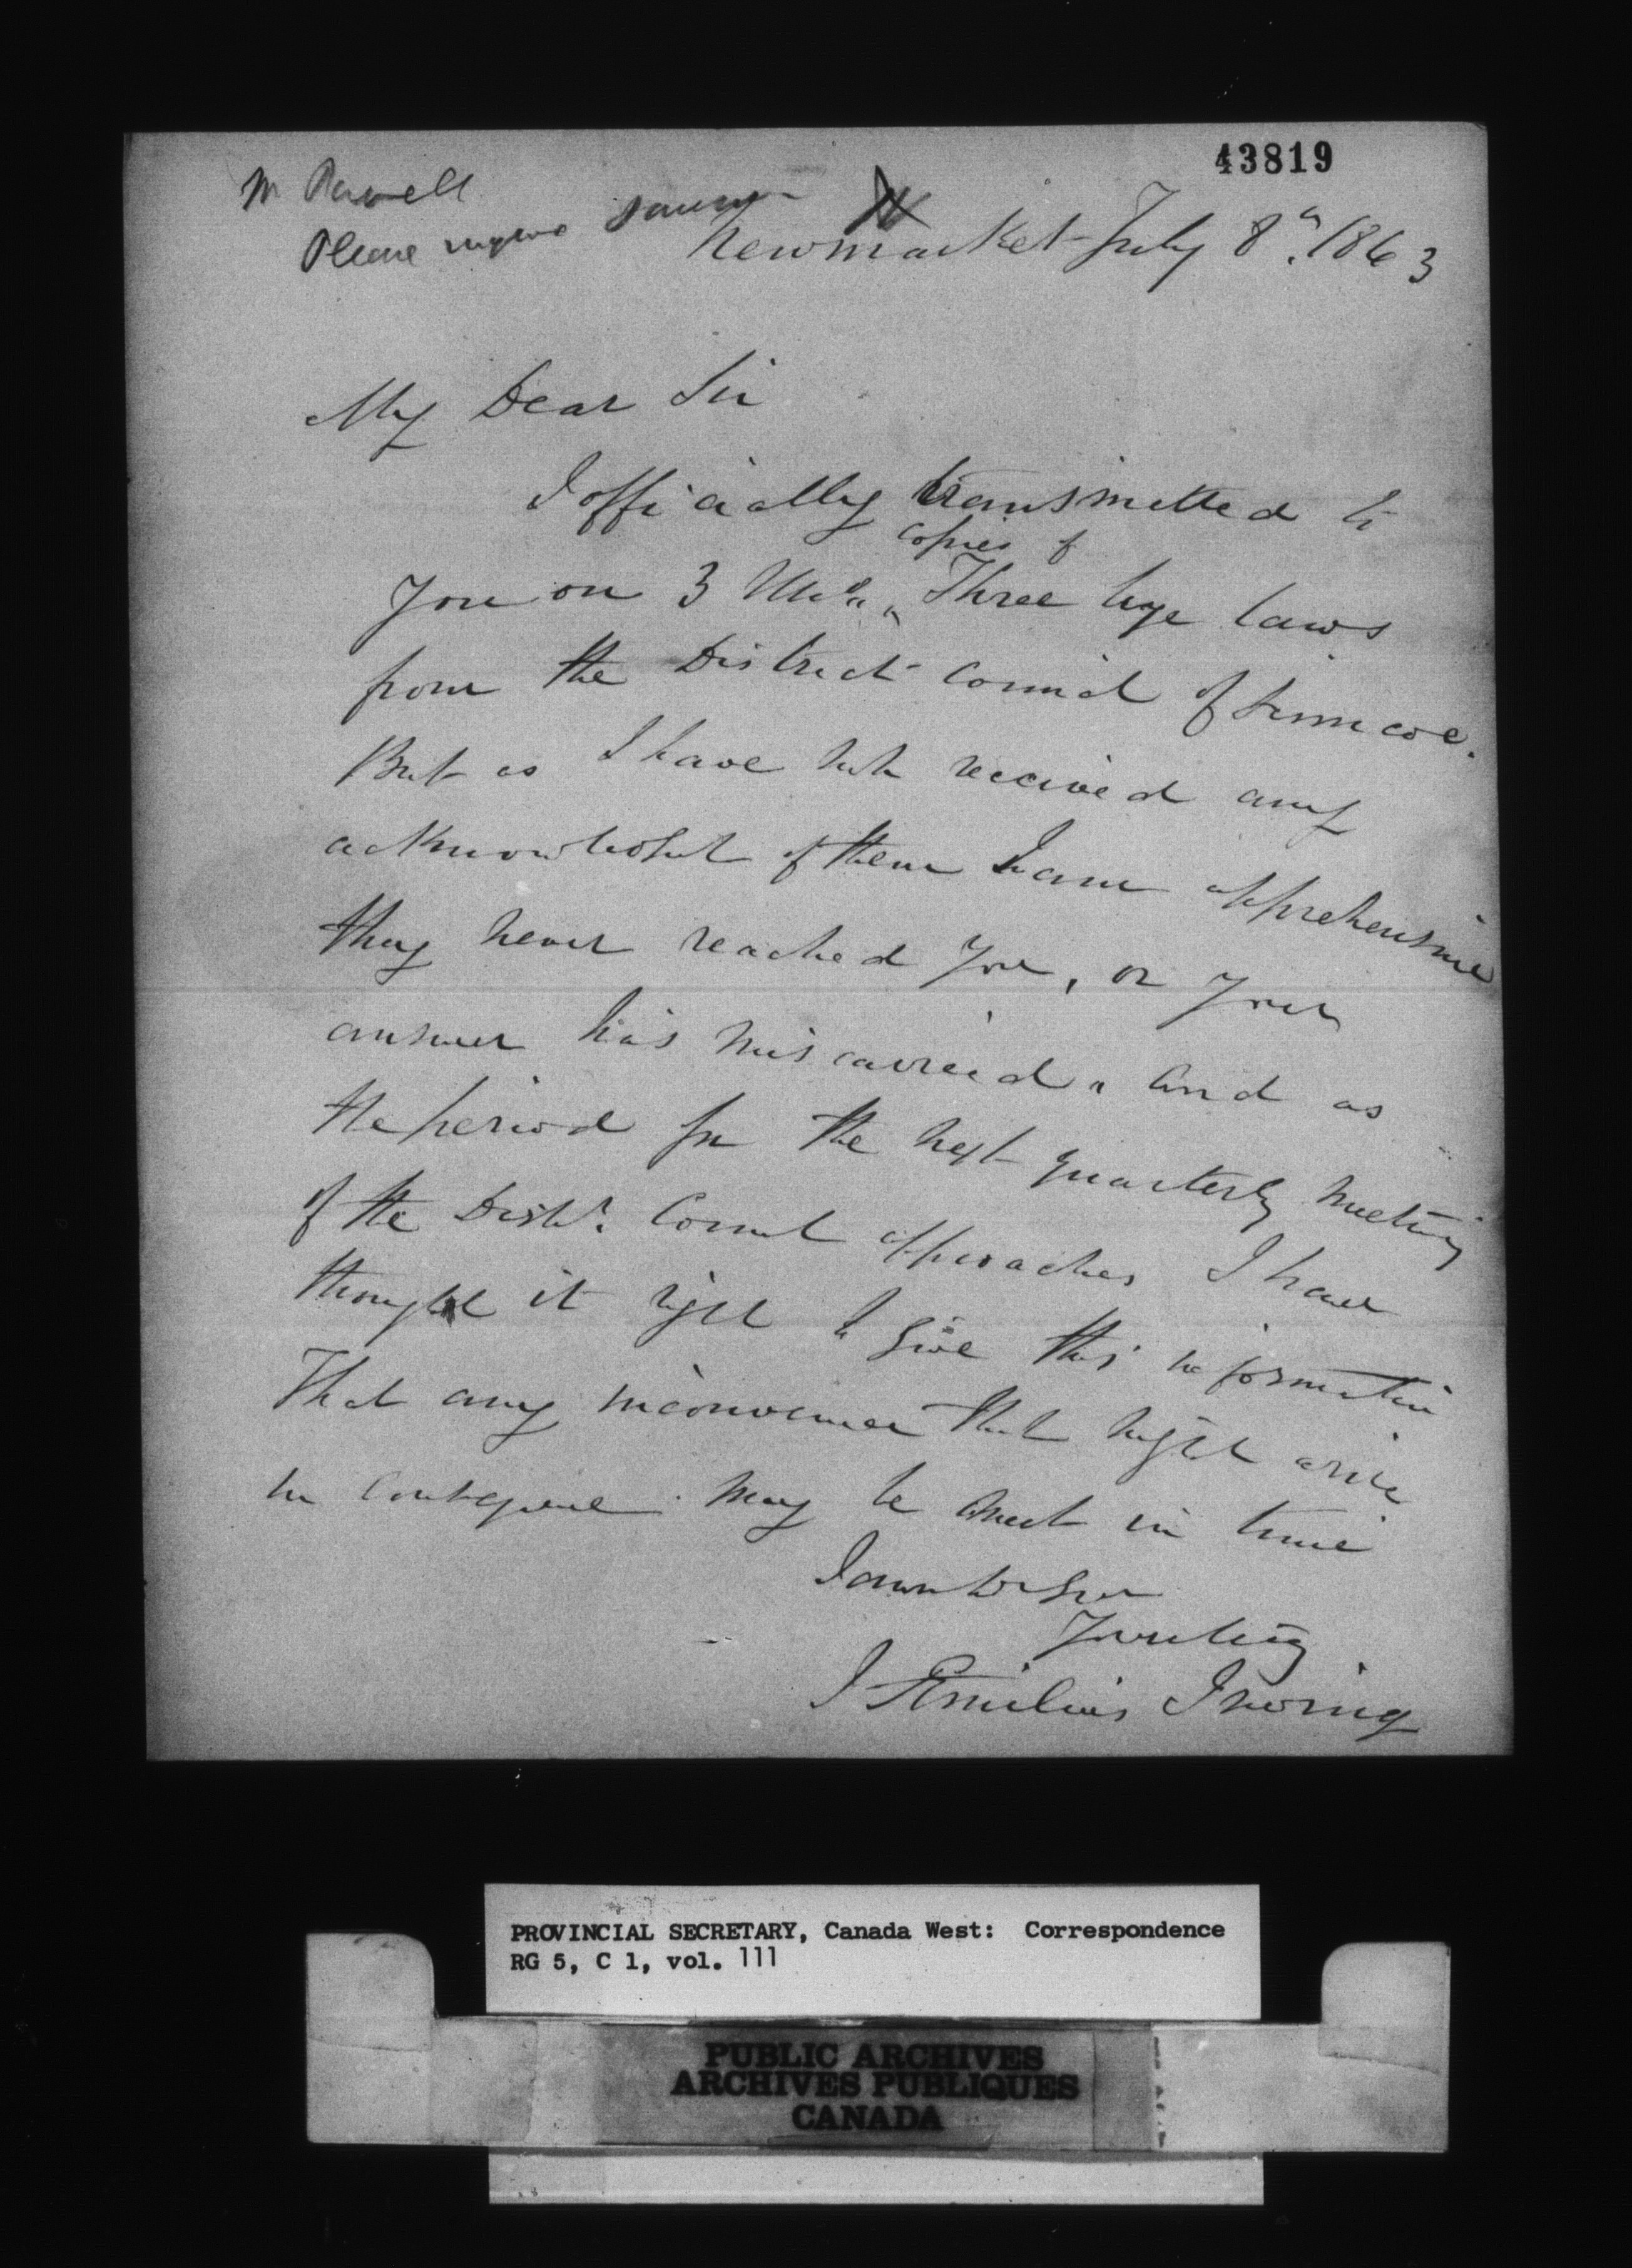 43819
M Powell
Please
Newmarket July 8th. 1863
My Dear Sir
I officially transmitted to
copies of
you on 3 Three bye laws
from the District Council of Simcoe.
But as I have not received any
of them I am apprehensive
they never reached you, or your
answer has miscarried, and as
the period for the next quarterly meeting
of the Distr. Council approaches I have
thought it right to give this information
That any inconvenience that might arise
in consequence may be met in time
I am Dr Sir
Yours truly
J Æmilius Irving
PROVINCIAL SECRETARY, Canada West: Correspondence
RG 5, C 1, vol. 111
PUBLIC ARCHIVES
ARCHIVES PUBLIQUES
CANADA